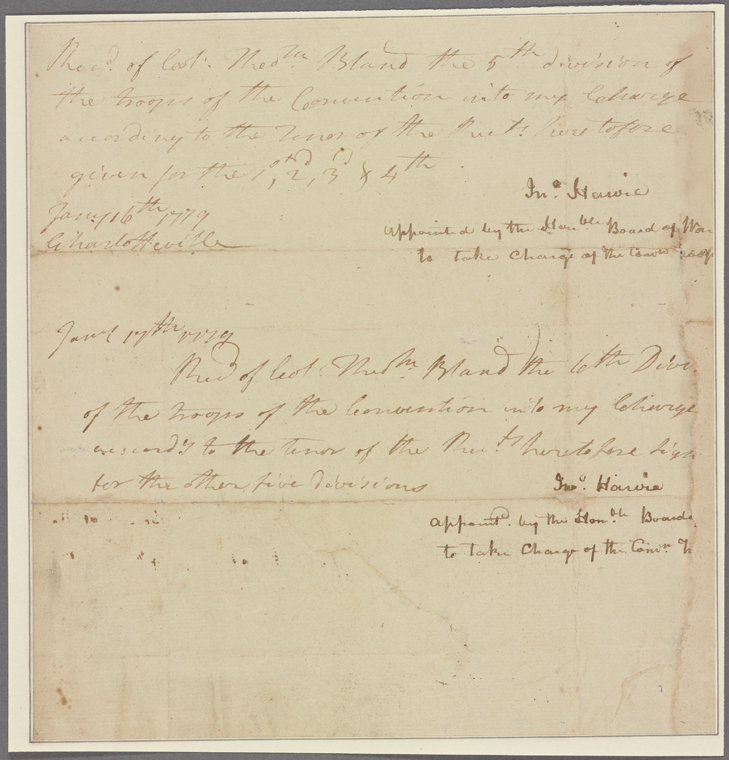 Recd. of Col. Theom Bland the 5th division of
the troops of the Convention into my Charge
according to the Tenor of the Rects. heretofore
given for the 1st, 2d, 3d & 4th
Jno. Hawie
Jany 16th 1779
Appointed by the Honble Board of War
Charlotteville
to take Charge of the Convn
Jany 17th 1779
Recd of Col. Theom Bland the 6th Divi
of the troops of the Convention into my Charge
accordg to the tenor of the Rects heretofore sign
for the other five divisions
Jno. Hawie
appointd. by the Honble Board
to take Charge of the Convn T